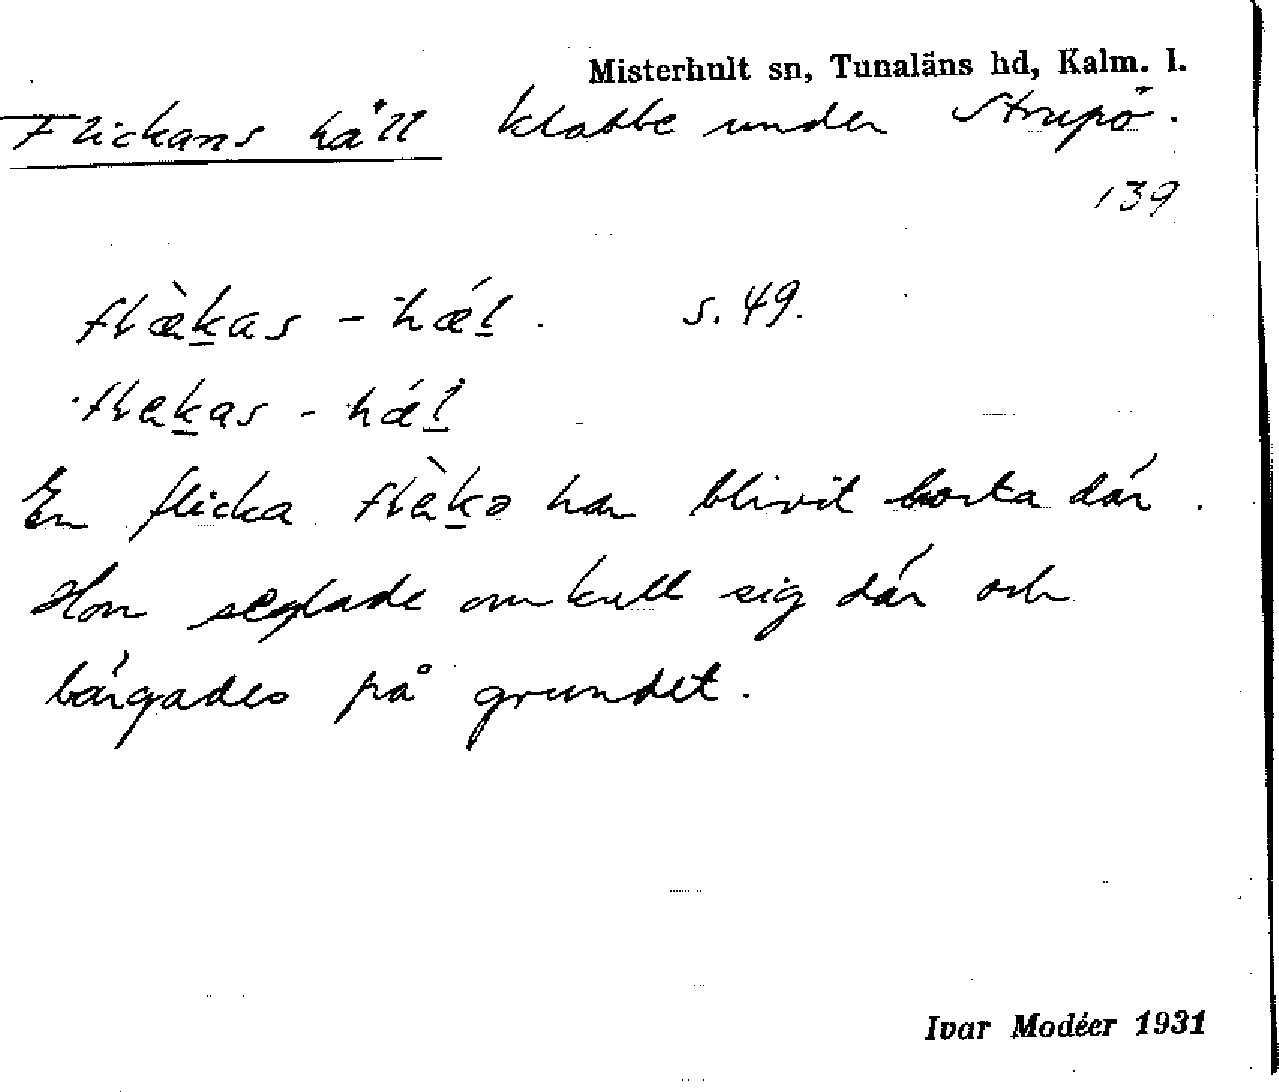 Misterhult sn, Tunaläns hd, Kalm. l.
Flickans häll klabbe under Strupö.
139
flæ̀ḵas - hǽḻ. s. 49.
flæḵas - hǽḻ
En flicka flæ̀ḵa har blivit borta där.
Hon seglade omkull sig där och
bärgades på grundet.
Ivar Modéer 1931